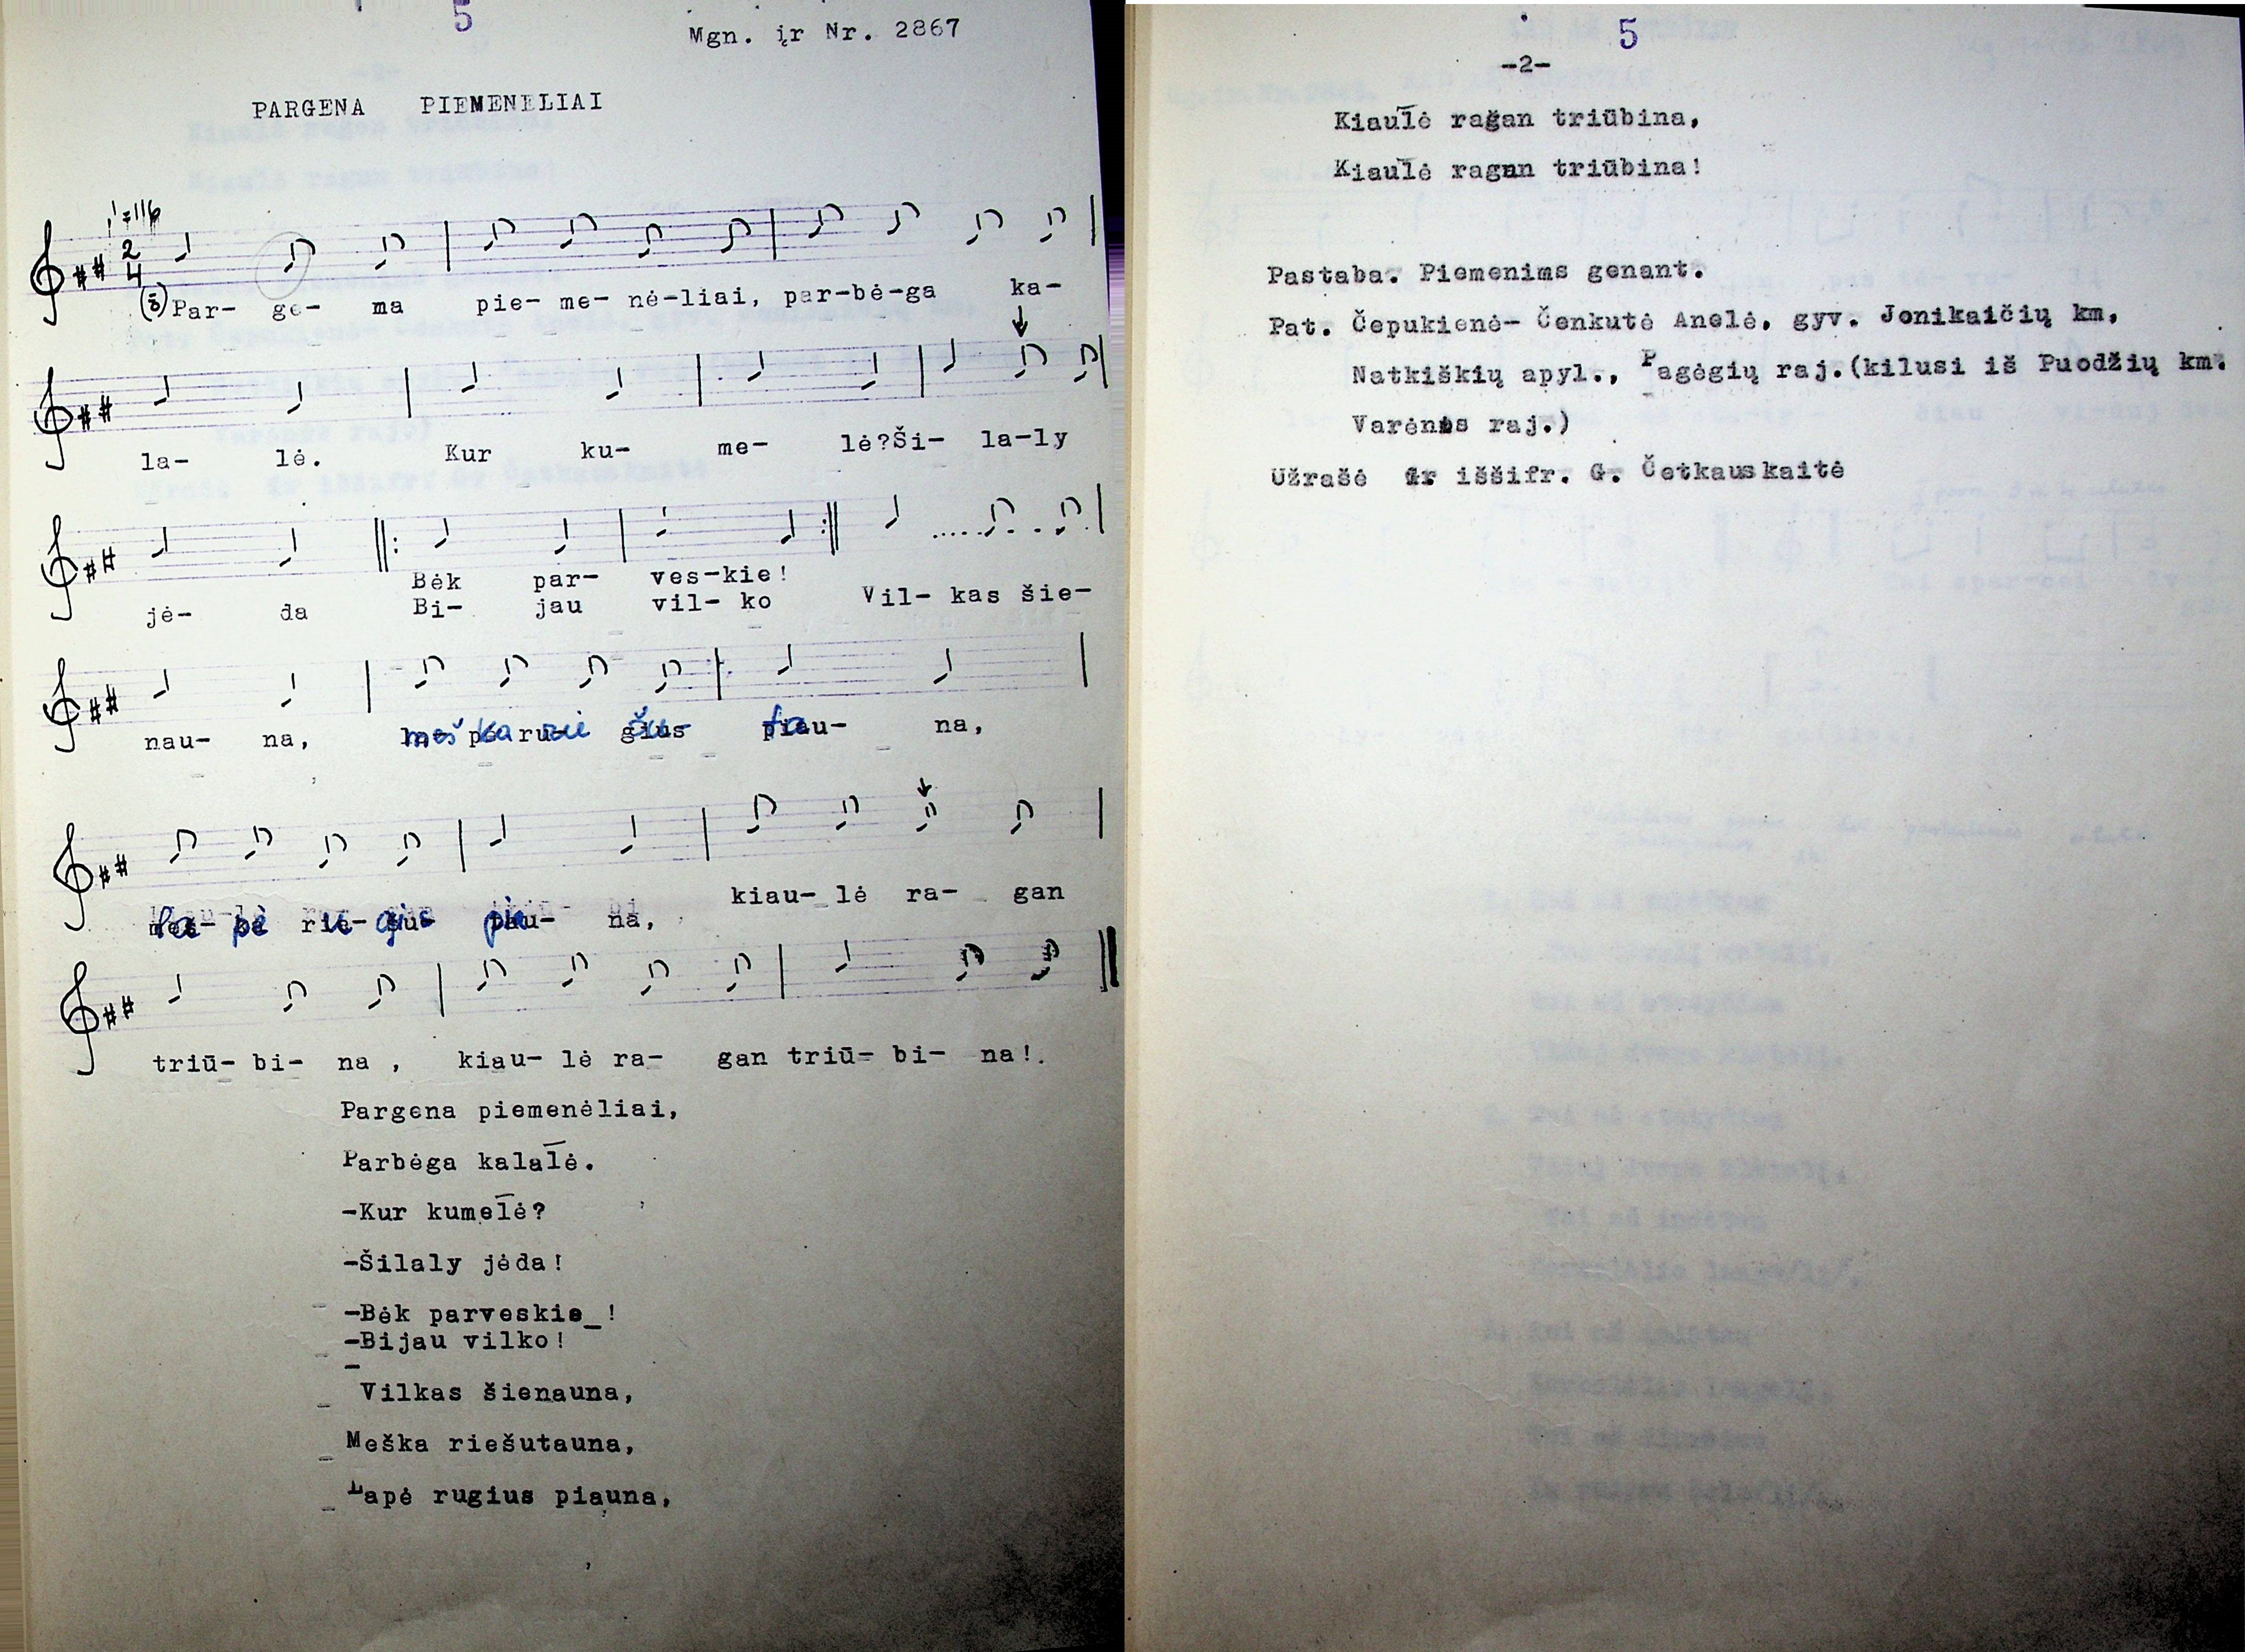 5
Mgn. įr Nr. 2867
PARGENA PIEMENELIAI
♩=116
2
4
(3) Par- ge- ma pie- me- nė-liai, par-bė-ga ka-
la- lė. Kur ku- me- lė?Ši- la-ly
jė- da Bėk par- ves-kie!
Bi- jau vil- ko Vil- kas šie-
nau- na, meš ka rie šu- ta- na,
la- pė ru- gius piau- na, kiau- lė ra- gan
triū- bi- na , kiau- lė ra- gan triū- bi- na!.
Pargena piemenėliai,
Parbėga kalalė.
-Kur kumelė?
-Šilaly jėda!
-Bėk parveskie_!
-Bijau vilko!
Vilkas šienauna,
Meška riešutauna,
Lapė rugius piauna,
5
-2-
Kiaulė ragan triūbina,
Kiaulė ragan triūbina!
Pastaba. Piemenims genant.
Pat. Čepukienė- Čenkutė Anelė, gyv. Jonikaičių km,
Natkiškių apyl., Pagėgių raj.(kilusi iš Puodžių km.
Varėnos raj.)
Užrašė ir iššifr. G. Četkauskaitė